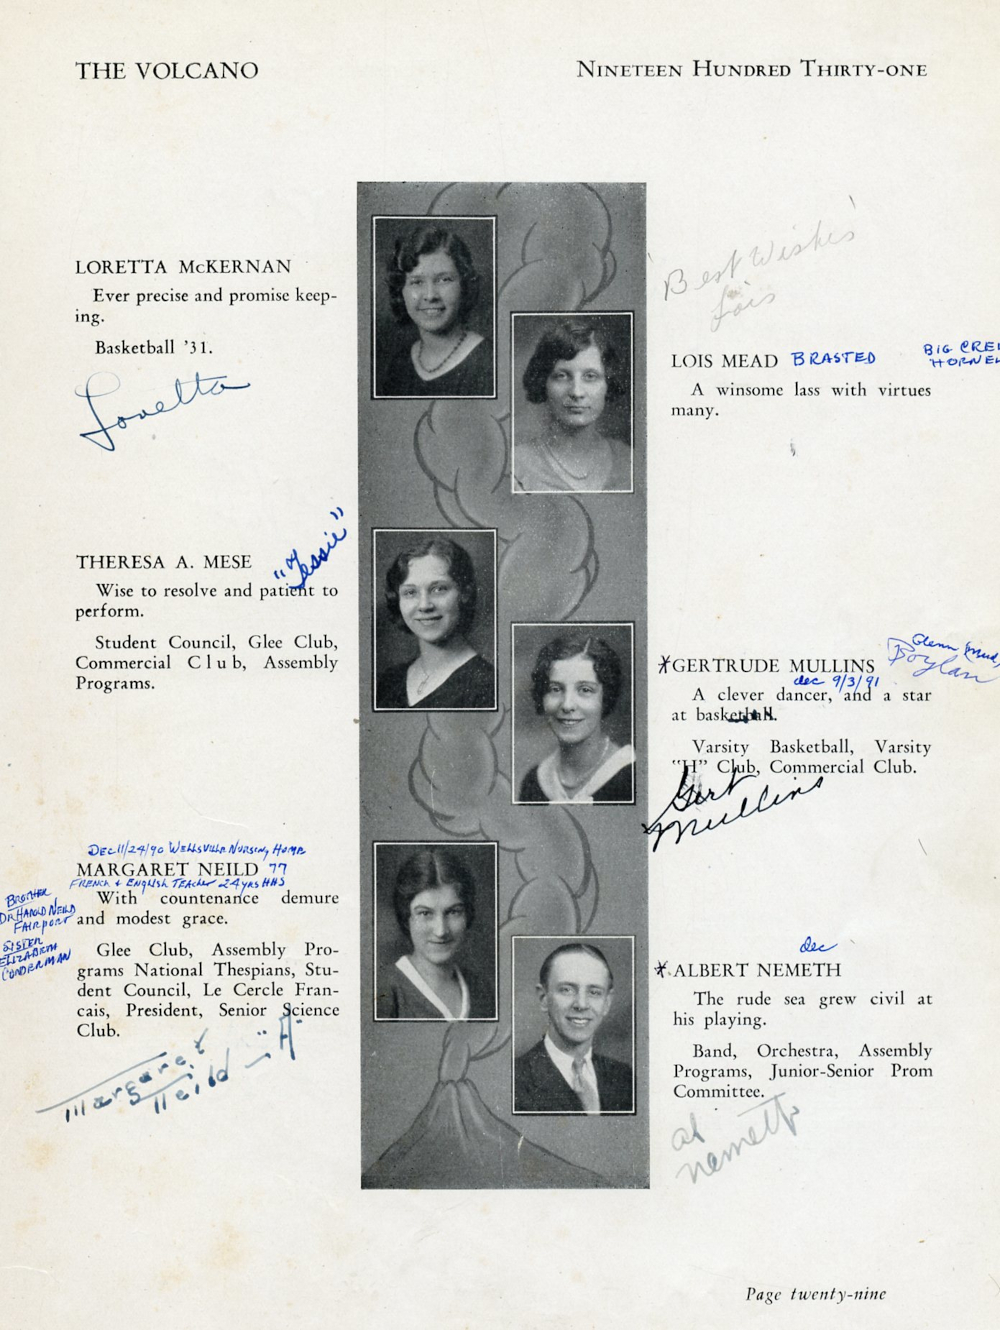 THE VOLCANO
NINETEEN HUNDRED THIRTY-ONE
LORETTA McKERNAN
Ever precise and promise keep-
ing.
Basketball '31.
Loretta
Best Wishes
Lois
LOIS MEAD BRASTED
BIG CREE
HORNEL
A winsome lass with virtues
many.
THERESA A. MESE "Tessie"
Wise to resolve and patient to
perform.
Student Council, Glee Club,
Commercial Club, Assembly
Programs.
*GERTRUDE MULLINS
Glenn (Mud)
Boylan
dec 9/3/91
A clever dancer, and a star
at basketball.
Varsity Basketball, Varsity
"H" Club, Commercial Club.
Gert
Mullins
DEC 11/24/90 WELLSVILLE NURSING HOME
MARGARET NEILD 77
FRENCH + ENGLISH TEACHER 24 YRS HHS
BROTHER
DR HAROLD NEILD
FAIRPORT
SISTER
ELIZABETH
CONDERMAN
With countenance demure
and modest grace.
Glee Club, Assembly Pro-
grams National Thespians, Stu-
dent Council, Le Cercle Fran-
cais, President, Senior Science
Club.
Margaret
Neild
dec
*ALBERT NEMETH
The rude sea grew civil at
his playing.
Band, Orchestra, Assembly
Programs, Junior-Senior Prom
Committee.
al
nemeth
Page twenty-nine